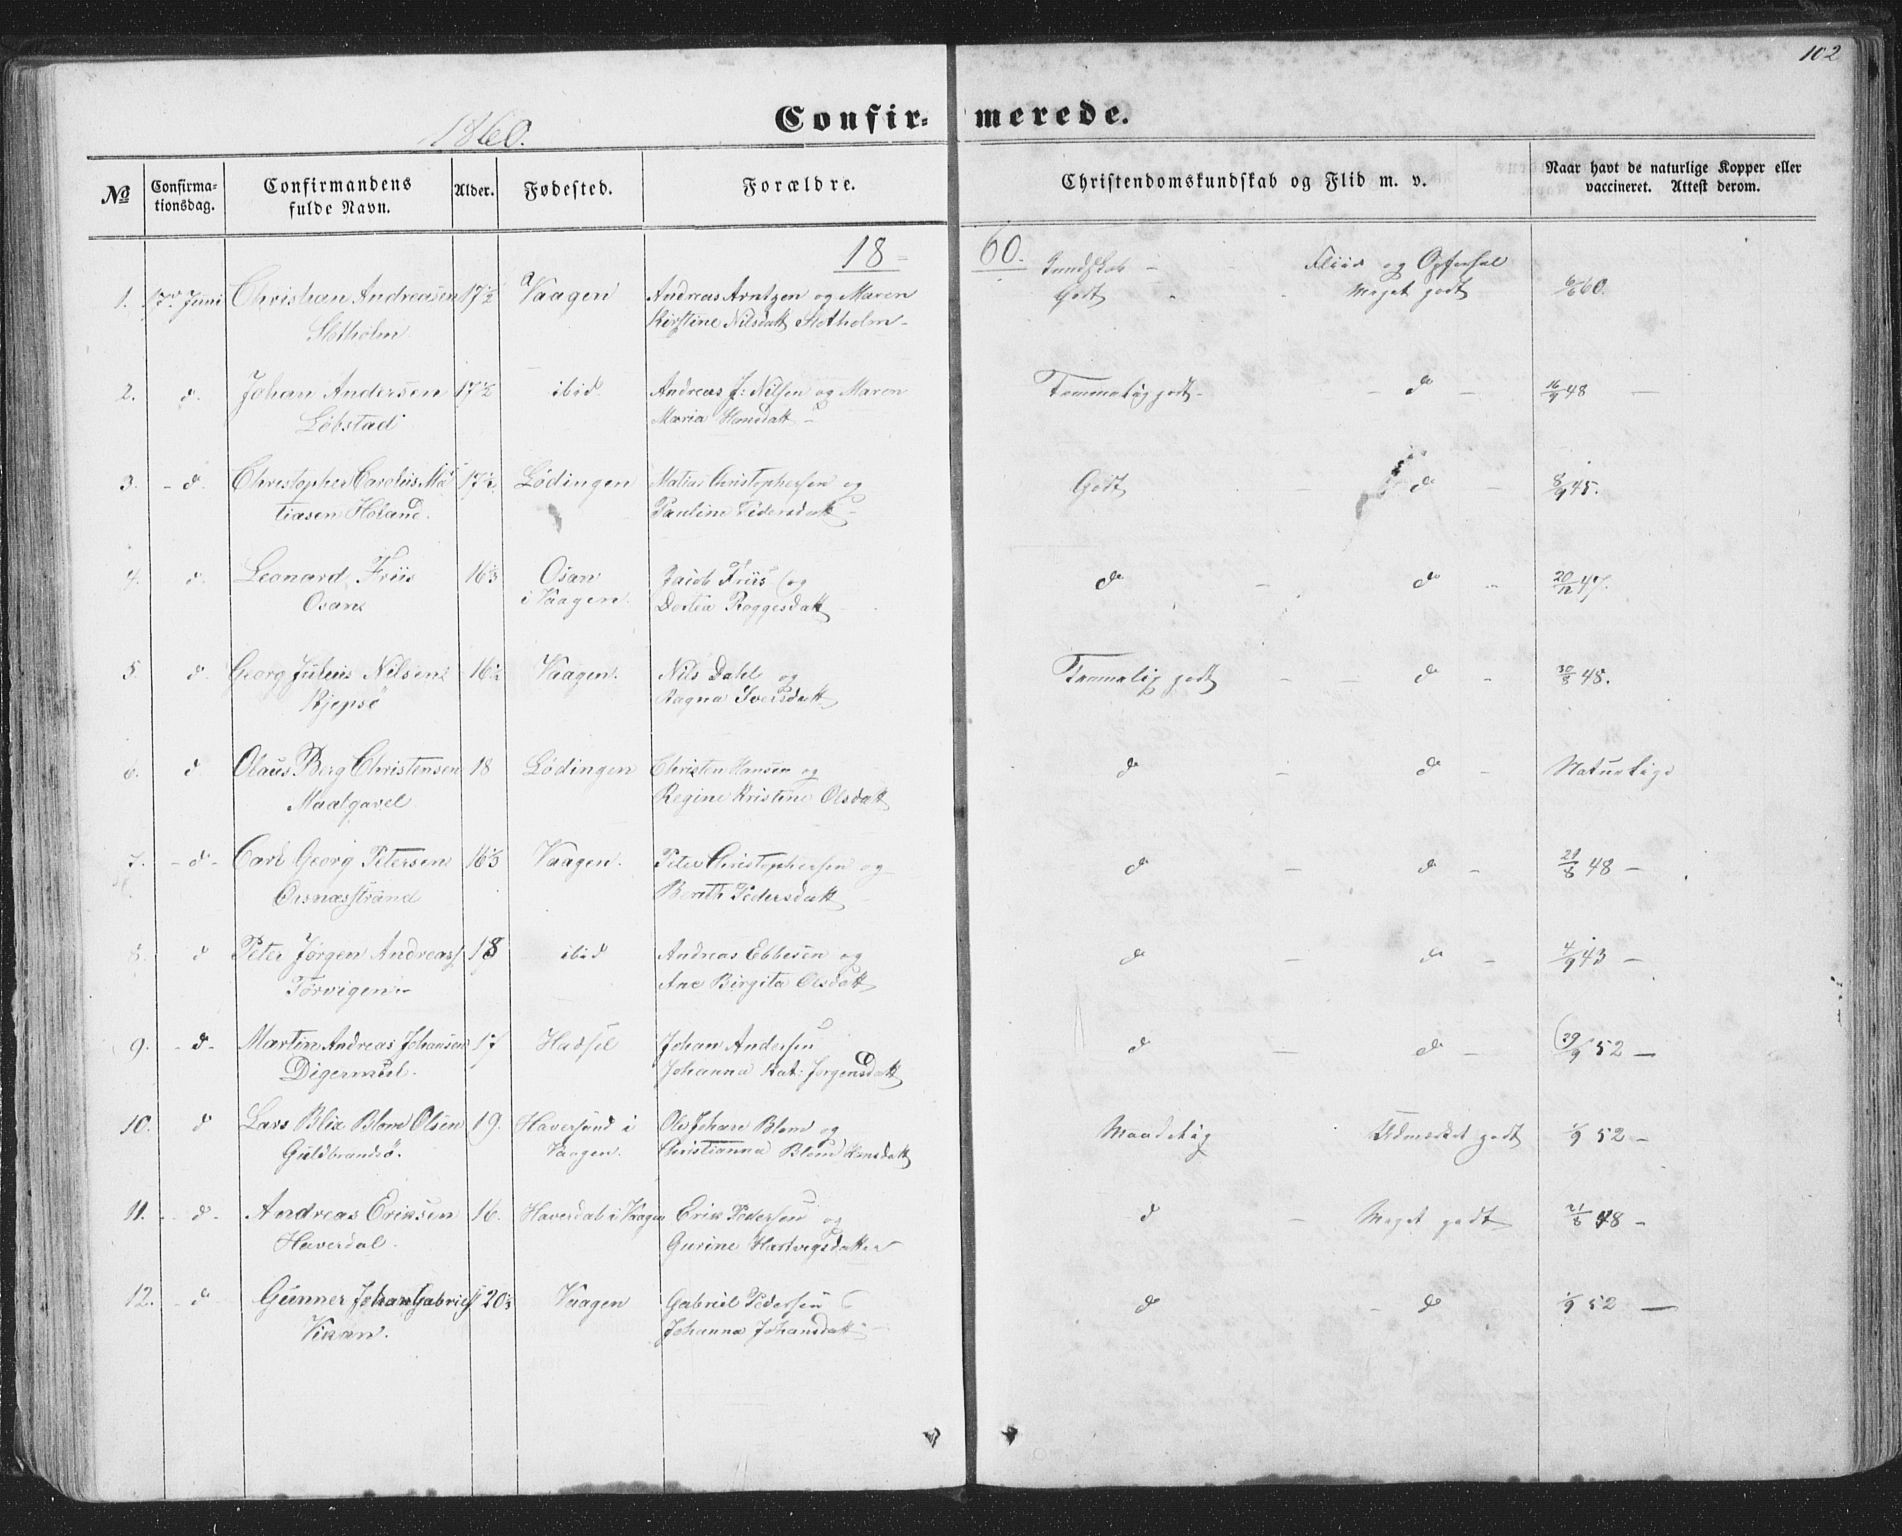 102
1860.
Confir- merede.
No
Confirma-
tionsdag.
Confirmandens
fulde Navn.
Alder.
Fødested.
Forældre.
Christendomskundskab og Flid m. v.
Naar havt de naturlige Kopper eller
vaccineret. Attest derom.
18 60.
Kundskab - Fliid og Opførsel
1. Juni Christian Andreasen 17½ Vaagen Andreas Arntzen og Maren Godt Meget godt 60.
Slotholm Kirstine Nilsdatt Slotholm
2. d. Johan Andersen 17½ ibid. Andreas J: Nilsen og Maren Temmelig godt - d - 16/9 48 -
Löbstad Maria Hansdatt
3. - d. Christopher Carolius Ma 17½ Lödingen Matias Christophersen og Godt - d - 8/9 45.
tiasen Höland. Pauline Pedersdatt
4. d. Leonard Friis 16½ Osan Jacob Friis og d - d - 20/12 47.
Osan i Vaagen. Dortea Roggesdatt
5. d. Georg Julius Nilsen 16½ Vaagen. Nils Dahl og Temmelig godt - d - 30/8 45.
Ragna Iversdatt
6. d Olaus Berg Christensen 18 Lödingen Christen Hansen og d - d - Naturlige
Maalgavel Regine Kristine Olsdatt
7. - d - Carl Georg Petersen 16½ Vaagen. Peter Christophersen og d - d - 21/8 48 -
Örsnæsstrand Berith Pedersdatt
8. d Peter Jørgen Andreas 18 ibid Andreas Ebbesen og d - d - 4/9 43 -
Törvigen Ane Birgita Olsdatt
9. - d - Martin Andreas Johansen 17 Hadsel Johan Andersen d - d - 29/9 52 -
Digermul. Johanna Kat: Jorgensdatt
10. d Lars Blix Blom Olsen 19. Haversand i Ole Johan Blom og Maadelig Udmerket godt 1/9 52 -
Guldbrandsö. Vaagen. Christianna Blom Hansdatt
11. - d - Andreas Eriksen 16. Haverdal i Vaagen Erik Pedersen og d - Meget godt 21/8 48 -
Haverdal. Gurine Hartvigsdatter
12. - d Gunner Johan Gabriel 20½ Vaagen Gabriel Pedersen d - d 1/9 52 -
Vikan. Johanna Johansdatt -